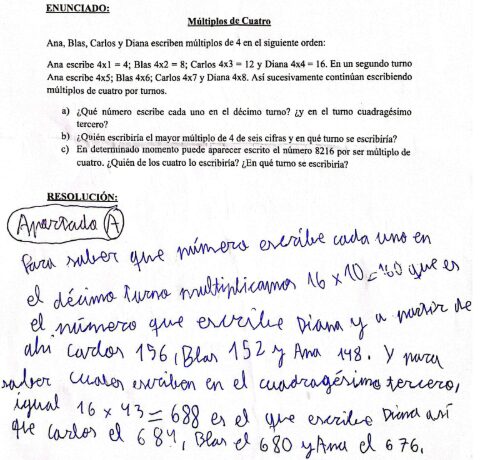 ENUNCIADO:
Múltiplos de Cuatro
Ana, Blas, Carlos y Diana escriben múltiplos de 4 en el siguiente orden:
Ana escribe 4x1 = 4; Blas 4x2 = 8; Carlos 4x3 = 12 y Diana 4x4 = 16. En un segundo turno
Ana escribe 4x5; Blas 4x6; Carlos 4x7 y Diana 4x8. Así sucesivamente continúan escribiendo
múltiplos de cuatro por turnos.
a) ¿Qué número escribe cada uno en el décimo turno? ¿y en el turno cuadragésimo
tercero?
b) ¿Quién escribiría el mayor múltiplo de 4 de seis cifras y en qué turno se escribiría?
c) En determinado momento puede aparecer escrito el número 8216 por ser múltiplo de
cuatro. ¿Quién de los cuatro lo escribiría? ¿En qué turno se escribiría?
RESOLUCIÓN:
Apartado A
Para saber que número escribe cada uno en
el décimo turno multiplicamos 16 x 10 = 160 que es
el número que escribe Diana y a partir de
ahi Carlos 156, Blas 152 y Ana 148. Y para
saber cuales escriben en el cuadragésimo tercero,
igual 16 x 43 = 688 es el que escribe Diana así
que Carlos el 684, Blas el 680 y Ana el 676.